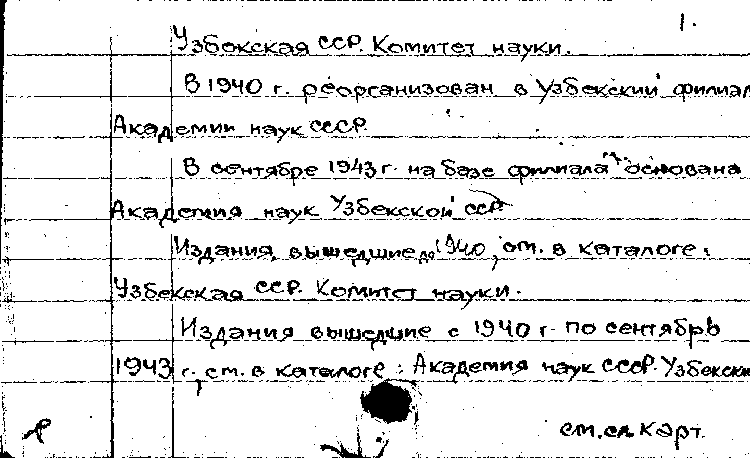 1.
Узбекская ССР. Комитет науки.
В 1940 г. реорганизован в Узбекский филиал
Академии наук СССР.
В сентябре 1943 г. на базе филиала основана
Академия наук Узбекской ССР
Издания, вышедшие до 1940, см. в каталоге:
Узбекская ССР. Комитет науки.
Издания вышедшие с 1940 г. по сентябрь
1943 г., см. в каталоге: Академия наук СССР. Узбекский
см. сл. карт.